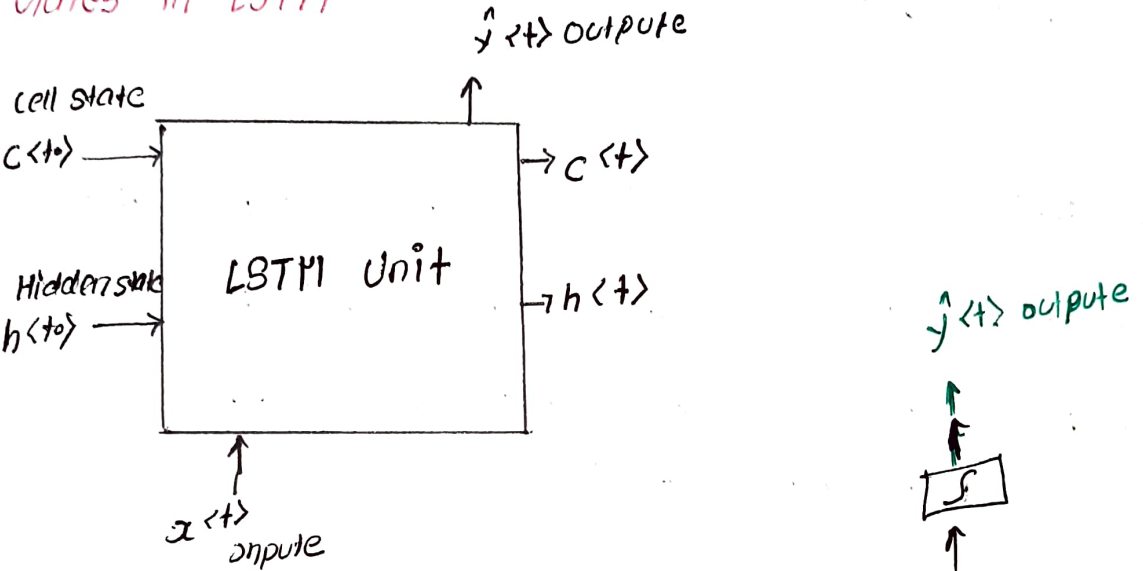 States in LSTM
ŷ <t> outpute
cell state
C<t0>
C <t>
LSTM Unit
Hidden state
h<t0>
h <t>
ŷ <t> outpute
∫
x <t>
onpute